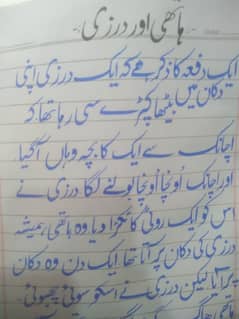 ہاتھی اور درزی
ایک دفعہ کا ذکر ہے کہ ایک درزی اپنی
دکان میں بیٹھا کپڑے سی رہا تھا کہ
اچانک سے ایک کا بچہ وہاں آگیا
اور اچانک اُونچا اُونچا بولنے لگا درزی نے
اس کو ایک روٹی کا ٹکڑا دیا وہ ہاتھی ہمیشہ
درزی کی دکان پر آتا تھا ایک دن وہ دکان
پر آیا لیکن درزی نے اسکو سوئی چبھوئی